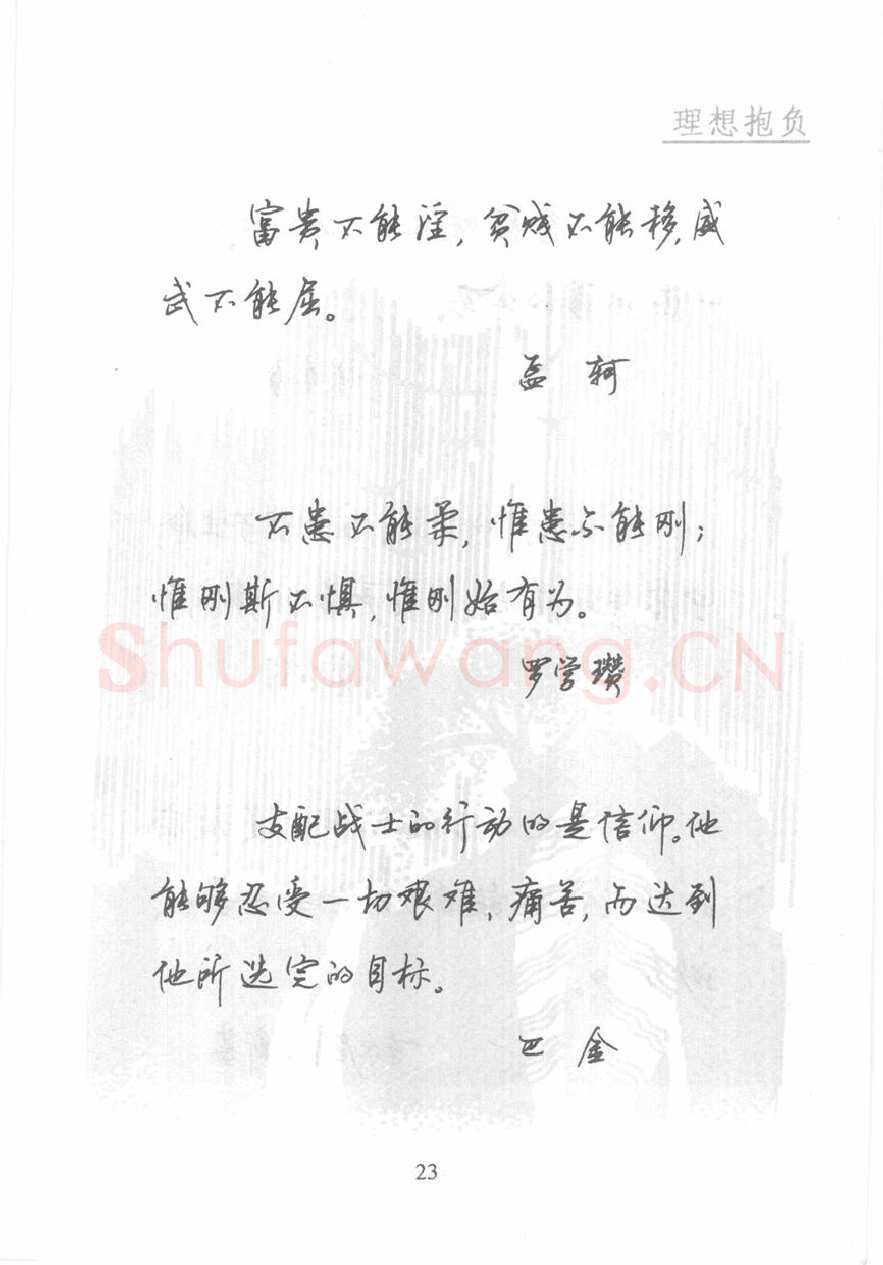 理想抱负
富贵不能淫,贫贱不能移,威
武不能屈。
孟 轲
不患不能柔,惟患不能刚;
惟刚斯不惧,惟刚始有为。
Shufawang.CN
罗学瓒
支配战士的行动的是信仰。他
能够忍受一切艰难、痛苦,而达到
他所选定的目标。
巴 金
23